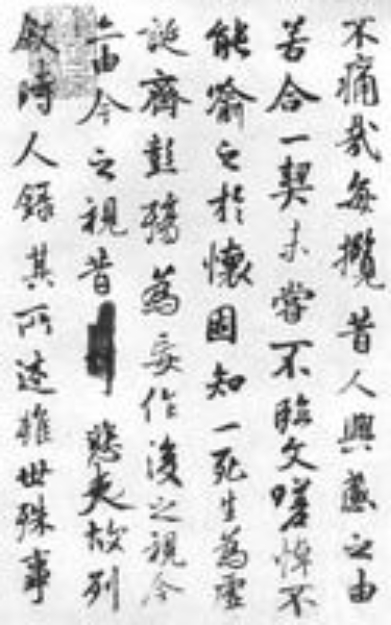 不痛哉每攬昔人興感之由
若合一契未嘗不臨文嗟悼不
能喻之於懷固知一死生為虛
誕齊彭殤為妄作後之視今
亦由今之視昔悲夫故列
敘時人錄其所述雖世殊事